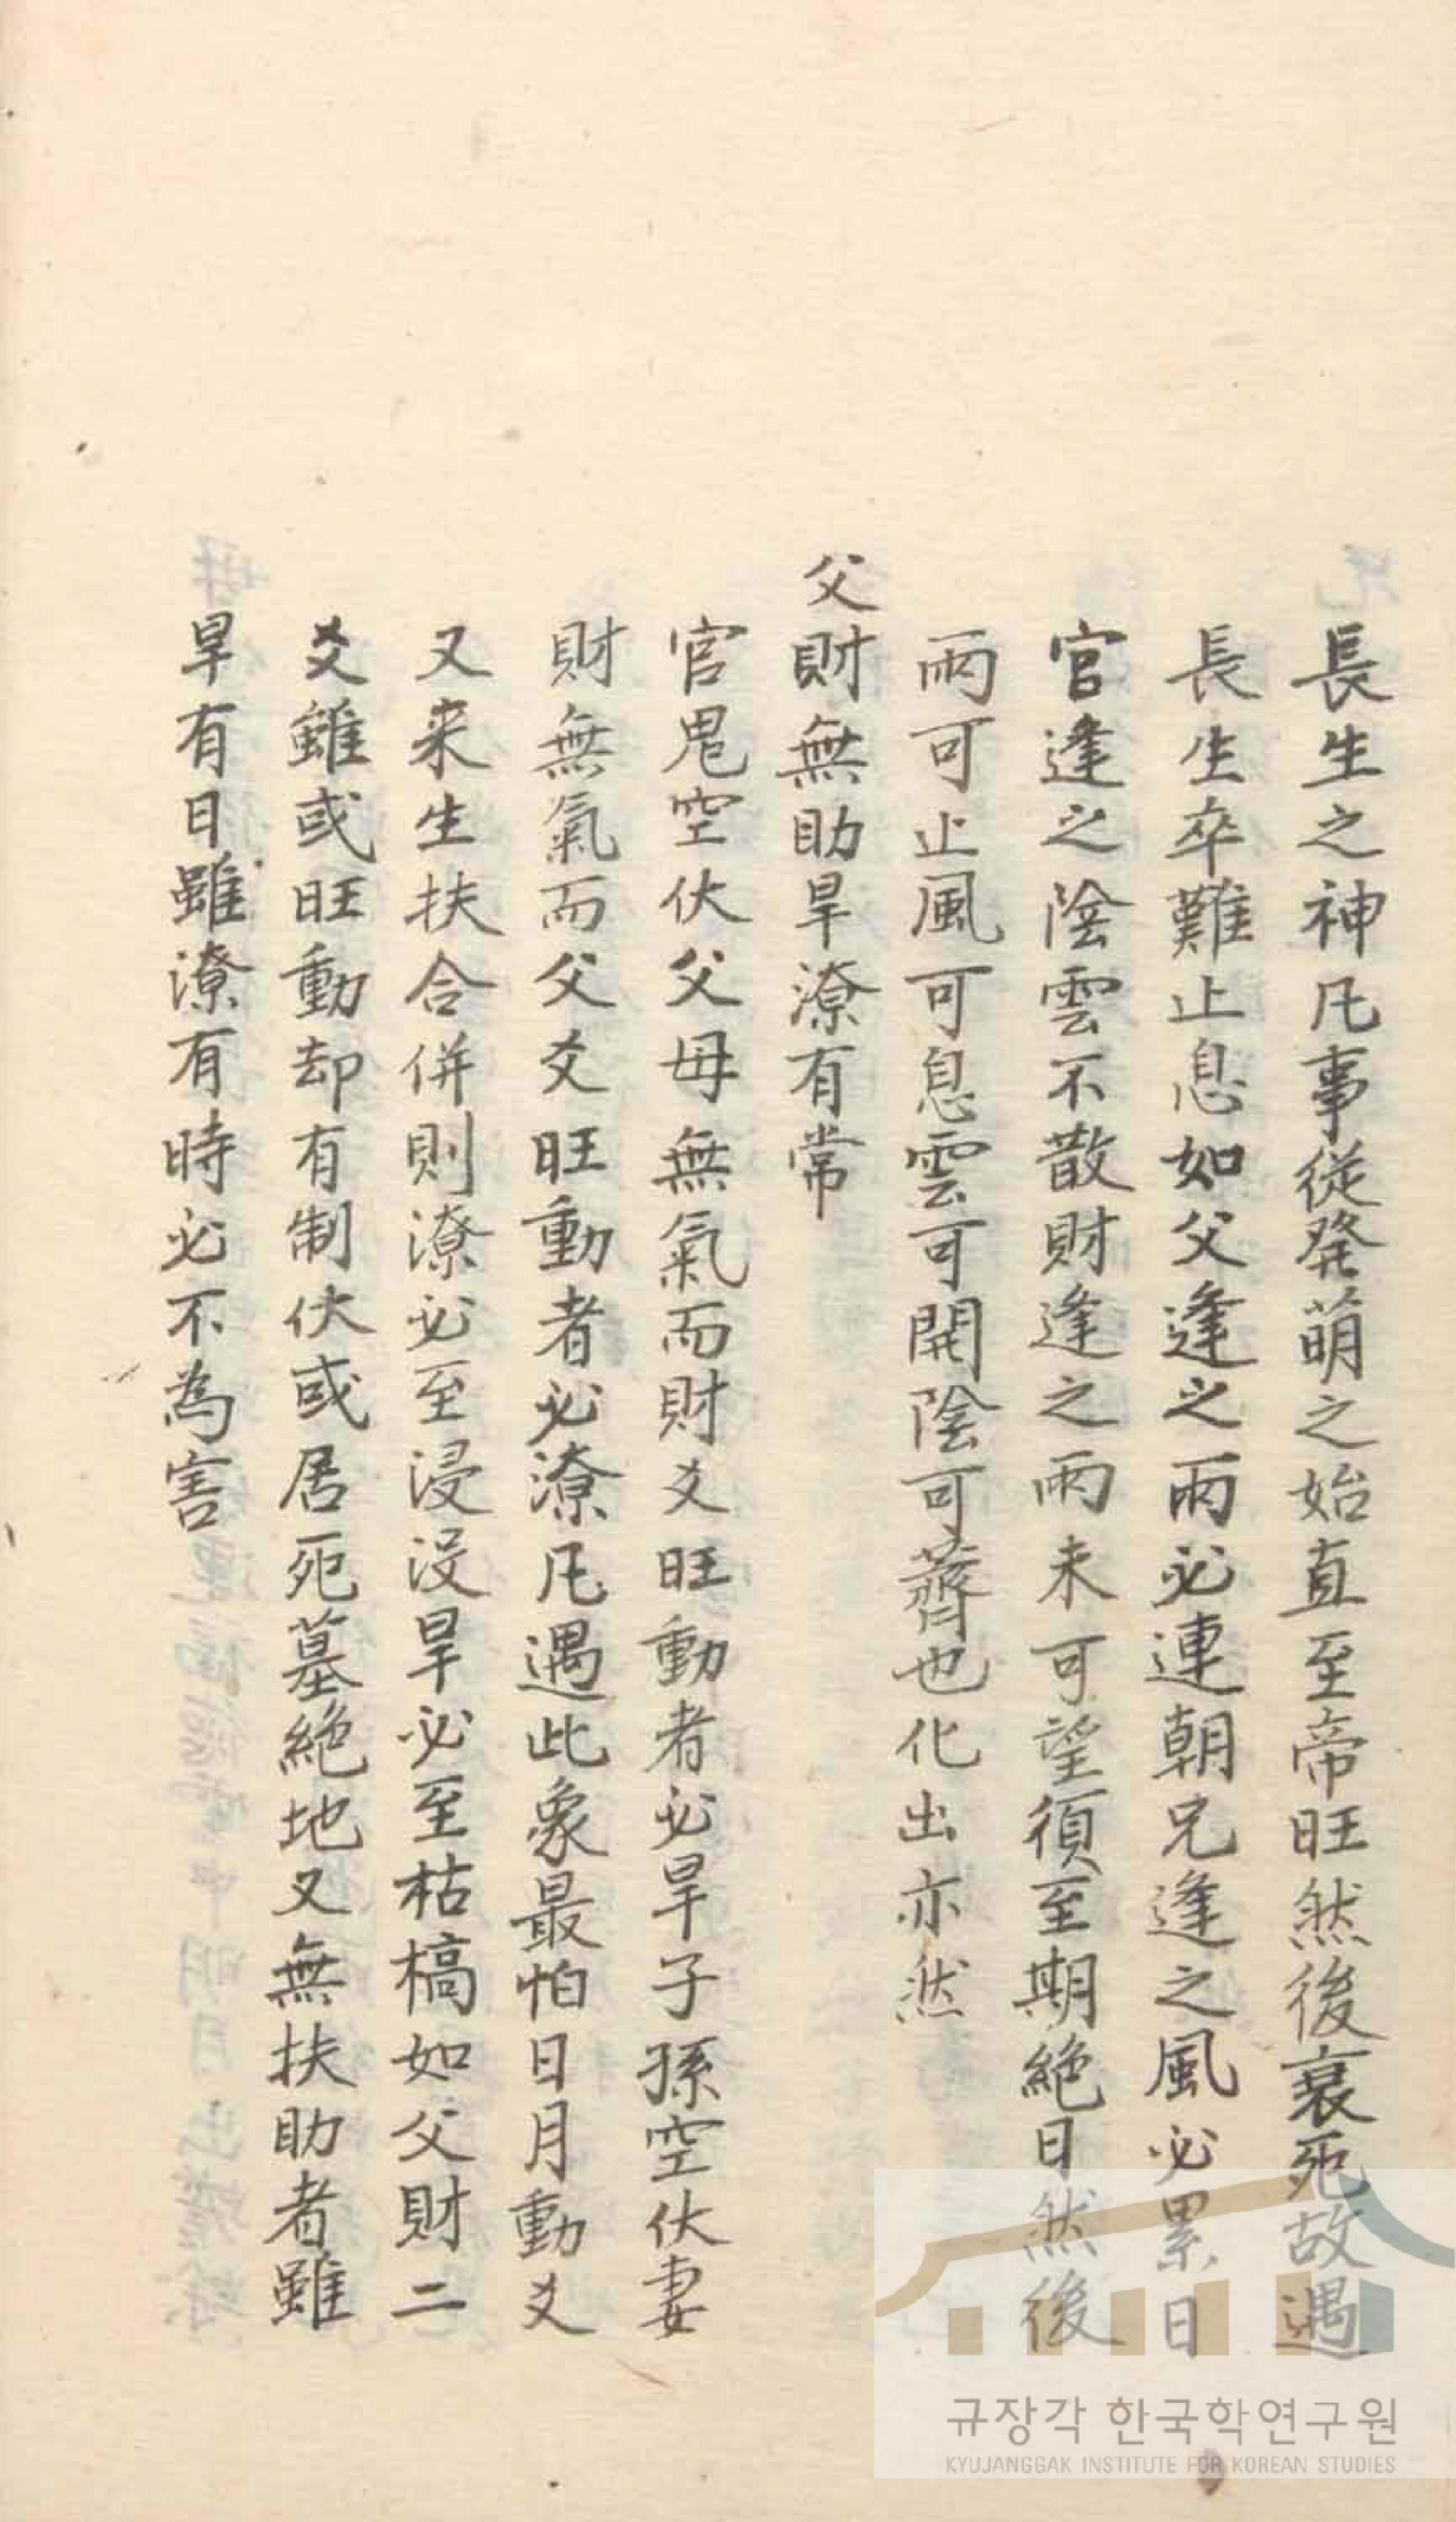 長生之神凡事從發萌之始直至帝旺然後衰死故遇
長生卒難止息如父逢之雨必連朝兄逢之風必累日
官逢之陰雲不散財逢之雨未可望須至期絶日然後
雨可止風可息雲可開陰可薺也化出亦然
父財無助旱潦有常
官鬼空伏父母無氣而財爻旺動者必旱子孫空伏妻
財無氣而父爻旺動者必潦凡遇此象最怕日月動爻
又来生扶合併則潦必至浸没旱必至枯槁如父財二
爻雖或旺動却有制伏或居死墓絶地又無扶助者雖
旱有日雖潦有時必不為害
규장각 한국학연구원
KYUJANGGAK INSTITUTE FOR KOREAN STUDIES